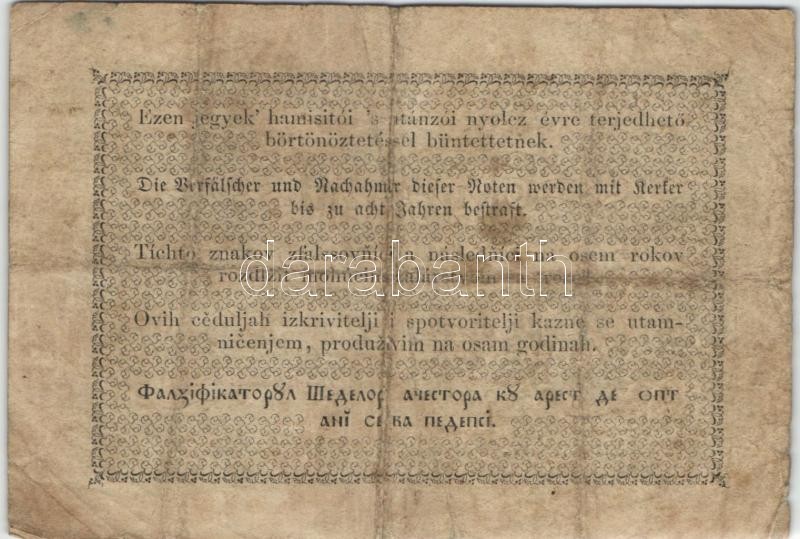 Ezen jegyek' hamisitói 's utánzói nyolcz évre terjedhető
börtönöztetéssel büntettetnek.
Die Verfälscher und Nachahmer dieser Noten werden mit Kerker
bis zu acht Jahren bestraft.
Tíchto znakov zfalšovňíci a následňíci na osem rokov
Ovih cěduljah izkrivitelji i spotvoritelji kazne se utam-
ničenjem, produživim na osam godinah.
Фалцифікаторꙋл Шеделор ачестора кꙋ арест де опт
анї се ва педепсі.
darabanth